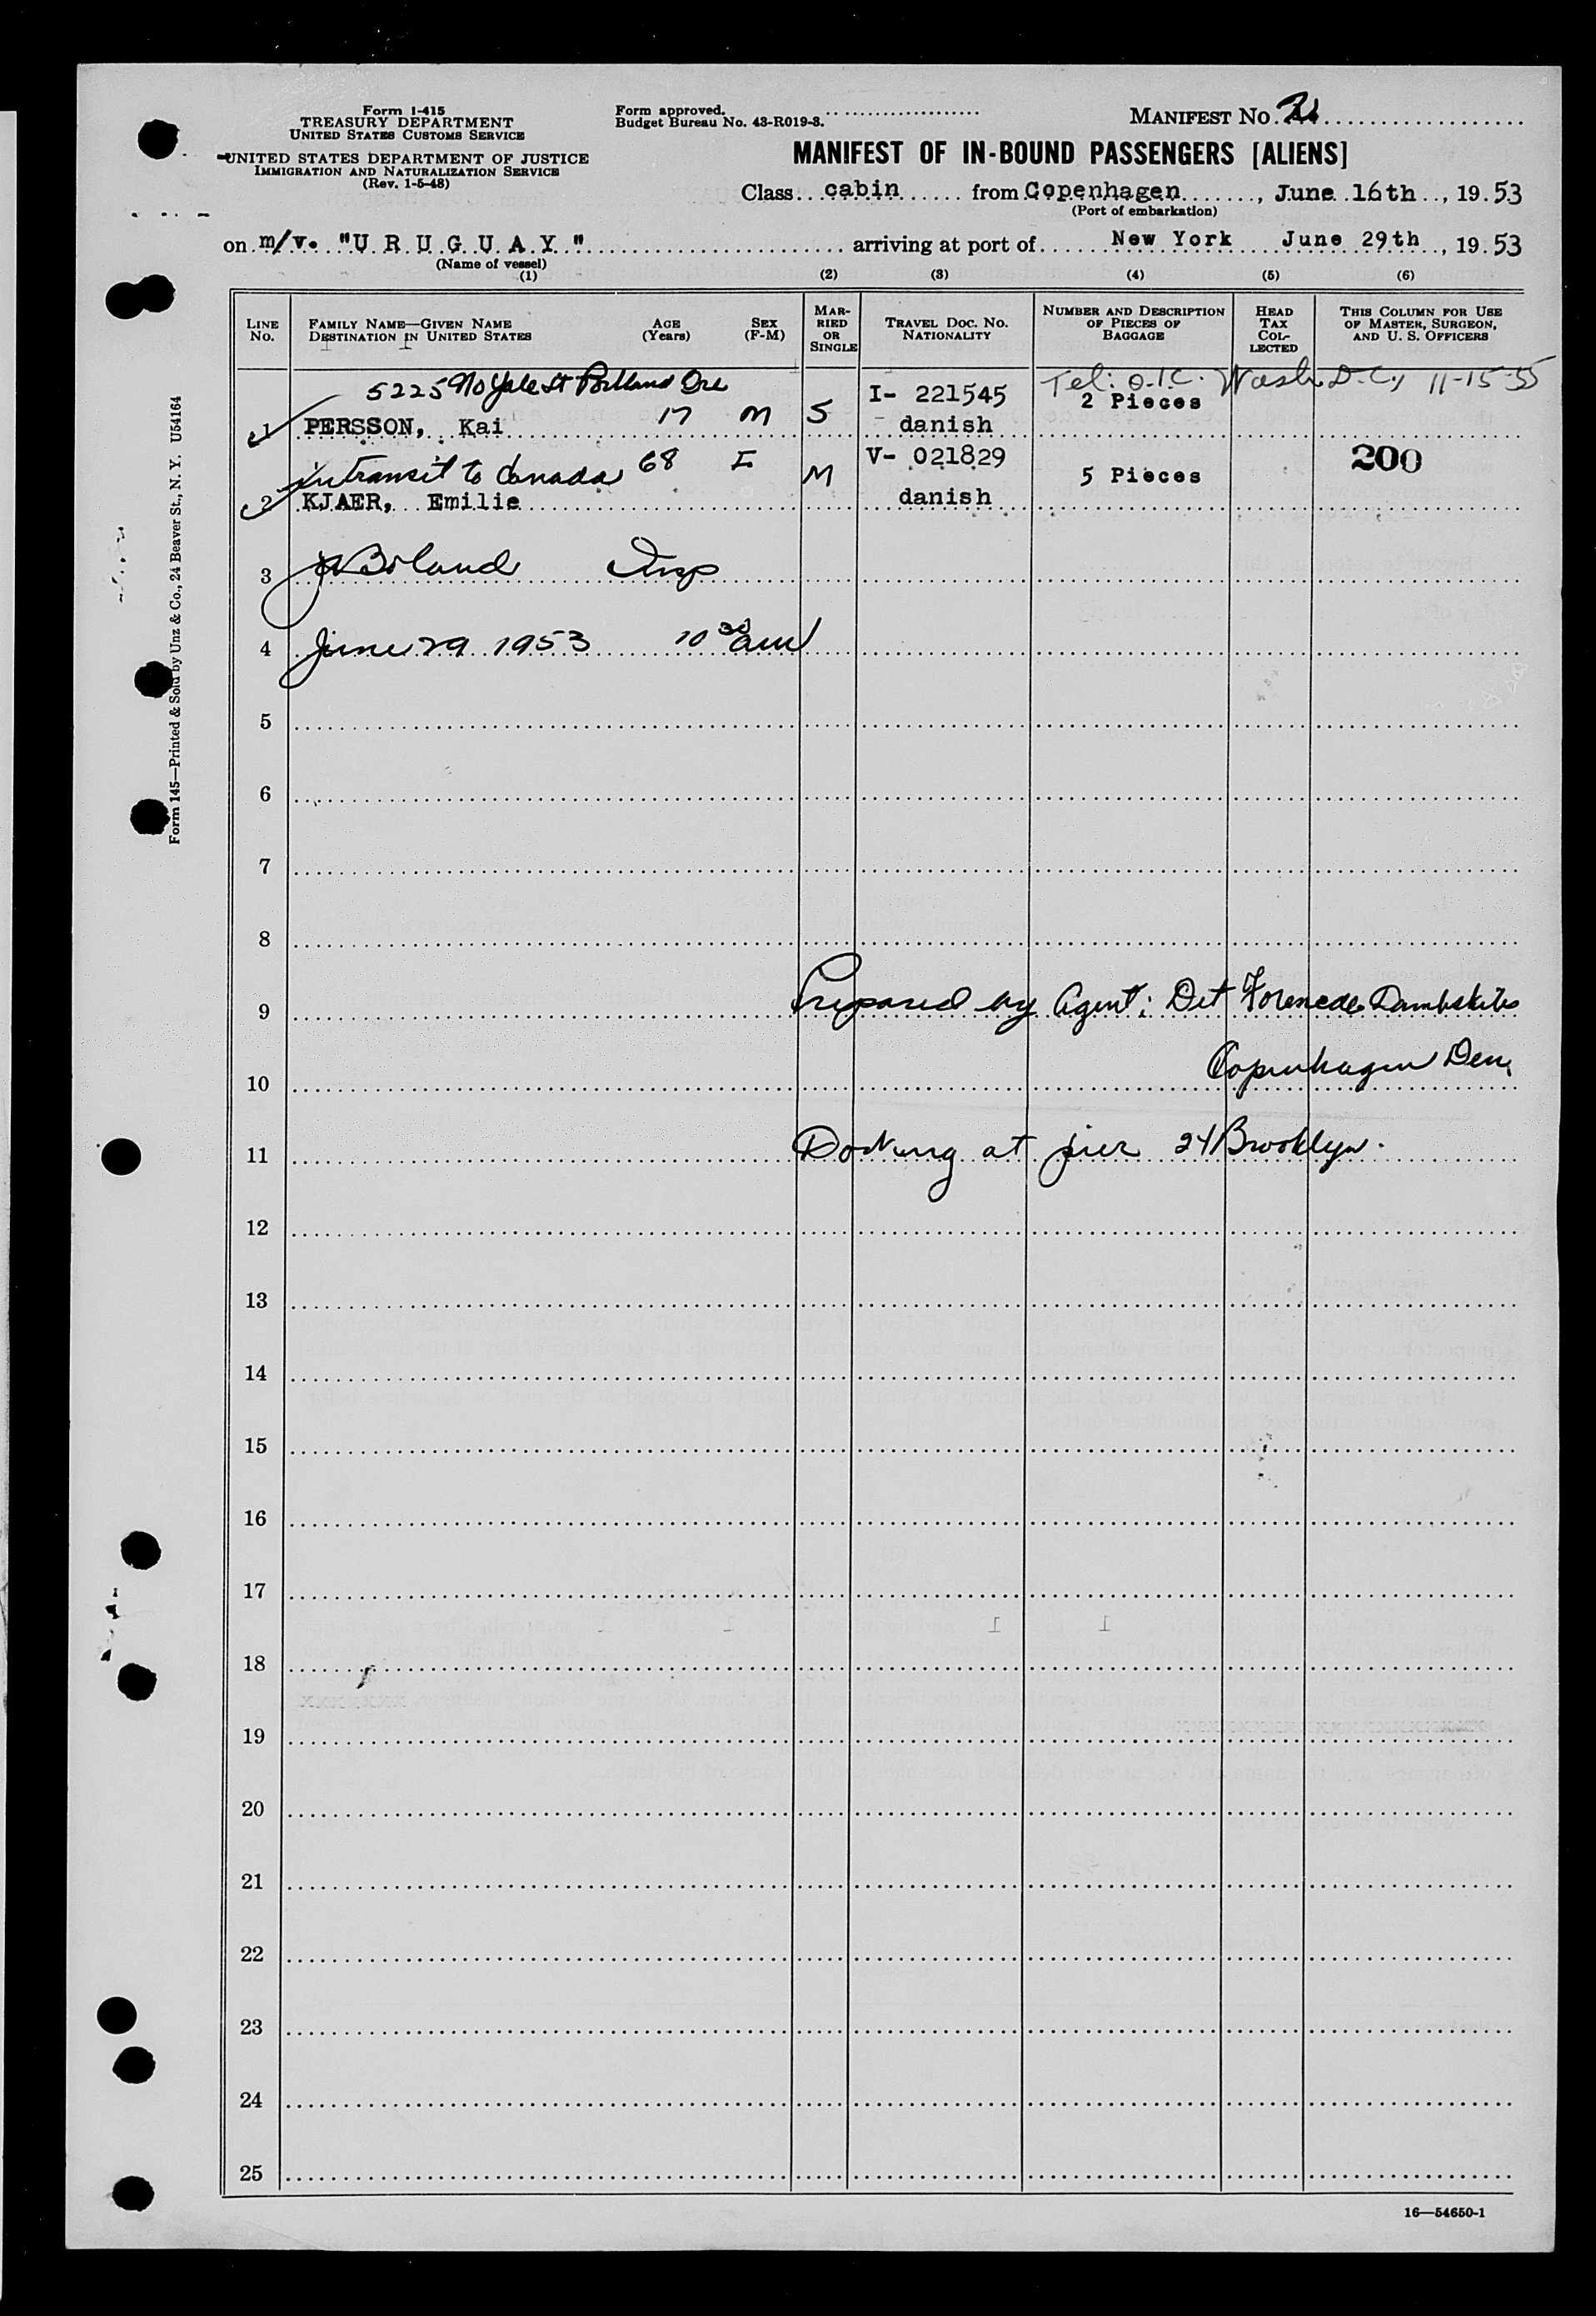 Form I-415
TREASURY DEPARTMENT
UNITED STATES CUSTOMS SERVICE
UNITED STATES DEPARTMENT OF JUSTICE
IMMIGRATION AND NATURALIZATION SERVICE
(Rev. 1-5-48)
Form approved.
Budget Bureau No. 43-R019-3.
MANIFEST No.
MANIFEST OF IN-BOUND PASSENGERS [ALIENS]
Class cabin from Copenhagen, June 16th, 1953
(Port of embarkation)
on m/v. "U R U G U A Y" arriving at port of New York June 29th, 1953
(Name of vessel)
(1) (2) (3) (4) (5) (6)
LINE No. FAMILY NAME—GIVEN NAME DESTINATION IN UNITED STATES AGE (Years) SEX (F-M) MARRIED OR SINGLE TRAVEL DOC. No. NATIONALITY NUMBER AND DESCRIPTION OF PIECES OF BAGGAGE HEAD TAX COLLECTED THIS COLUMN FOR USE OF MASTER, SURGEON, AND U. S. OFFICERS
5225 No Yale St Portland Ore Tel: O.I.C. Wash. D.C., 11-15-55
I- 221545 2 Pieces
1 PERSSON, Kai 17 M S danish
in transit to Canada 68 F M V- 021829 5 Pieces 200
2 KJAER, Emilie danish
3 Boland Insp
4 June 29 1953 10 30 am
5
6
7
8
9 Prepared by Agent; Det Forenede Dambskibs
Copenhagen Den.
10
11 Docking at pier 24 Brooklyn.
12
13
14
15
16
17
18
19
20
21
22
23
24
25
16—54650-1
Form 145—Printed & Sold by Unz & Co., 24 Beaver St., N. Y. U54164